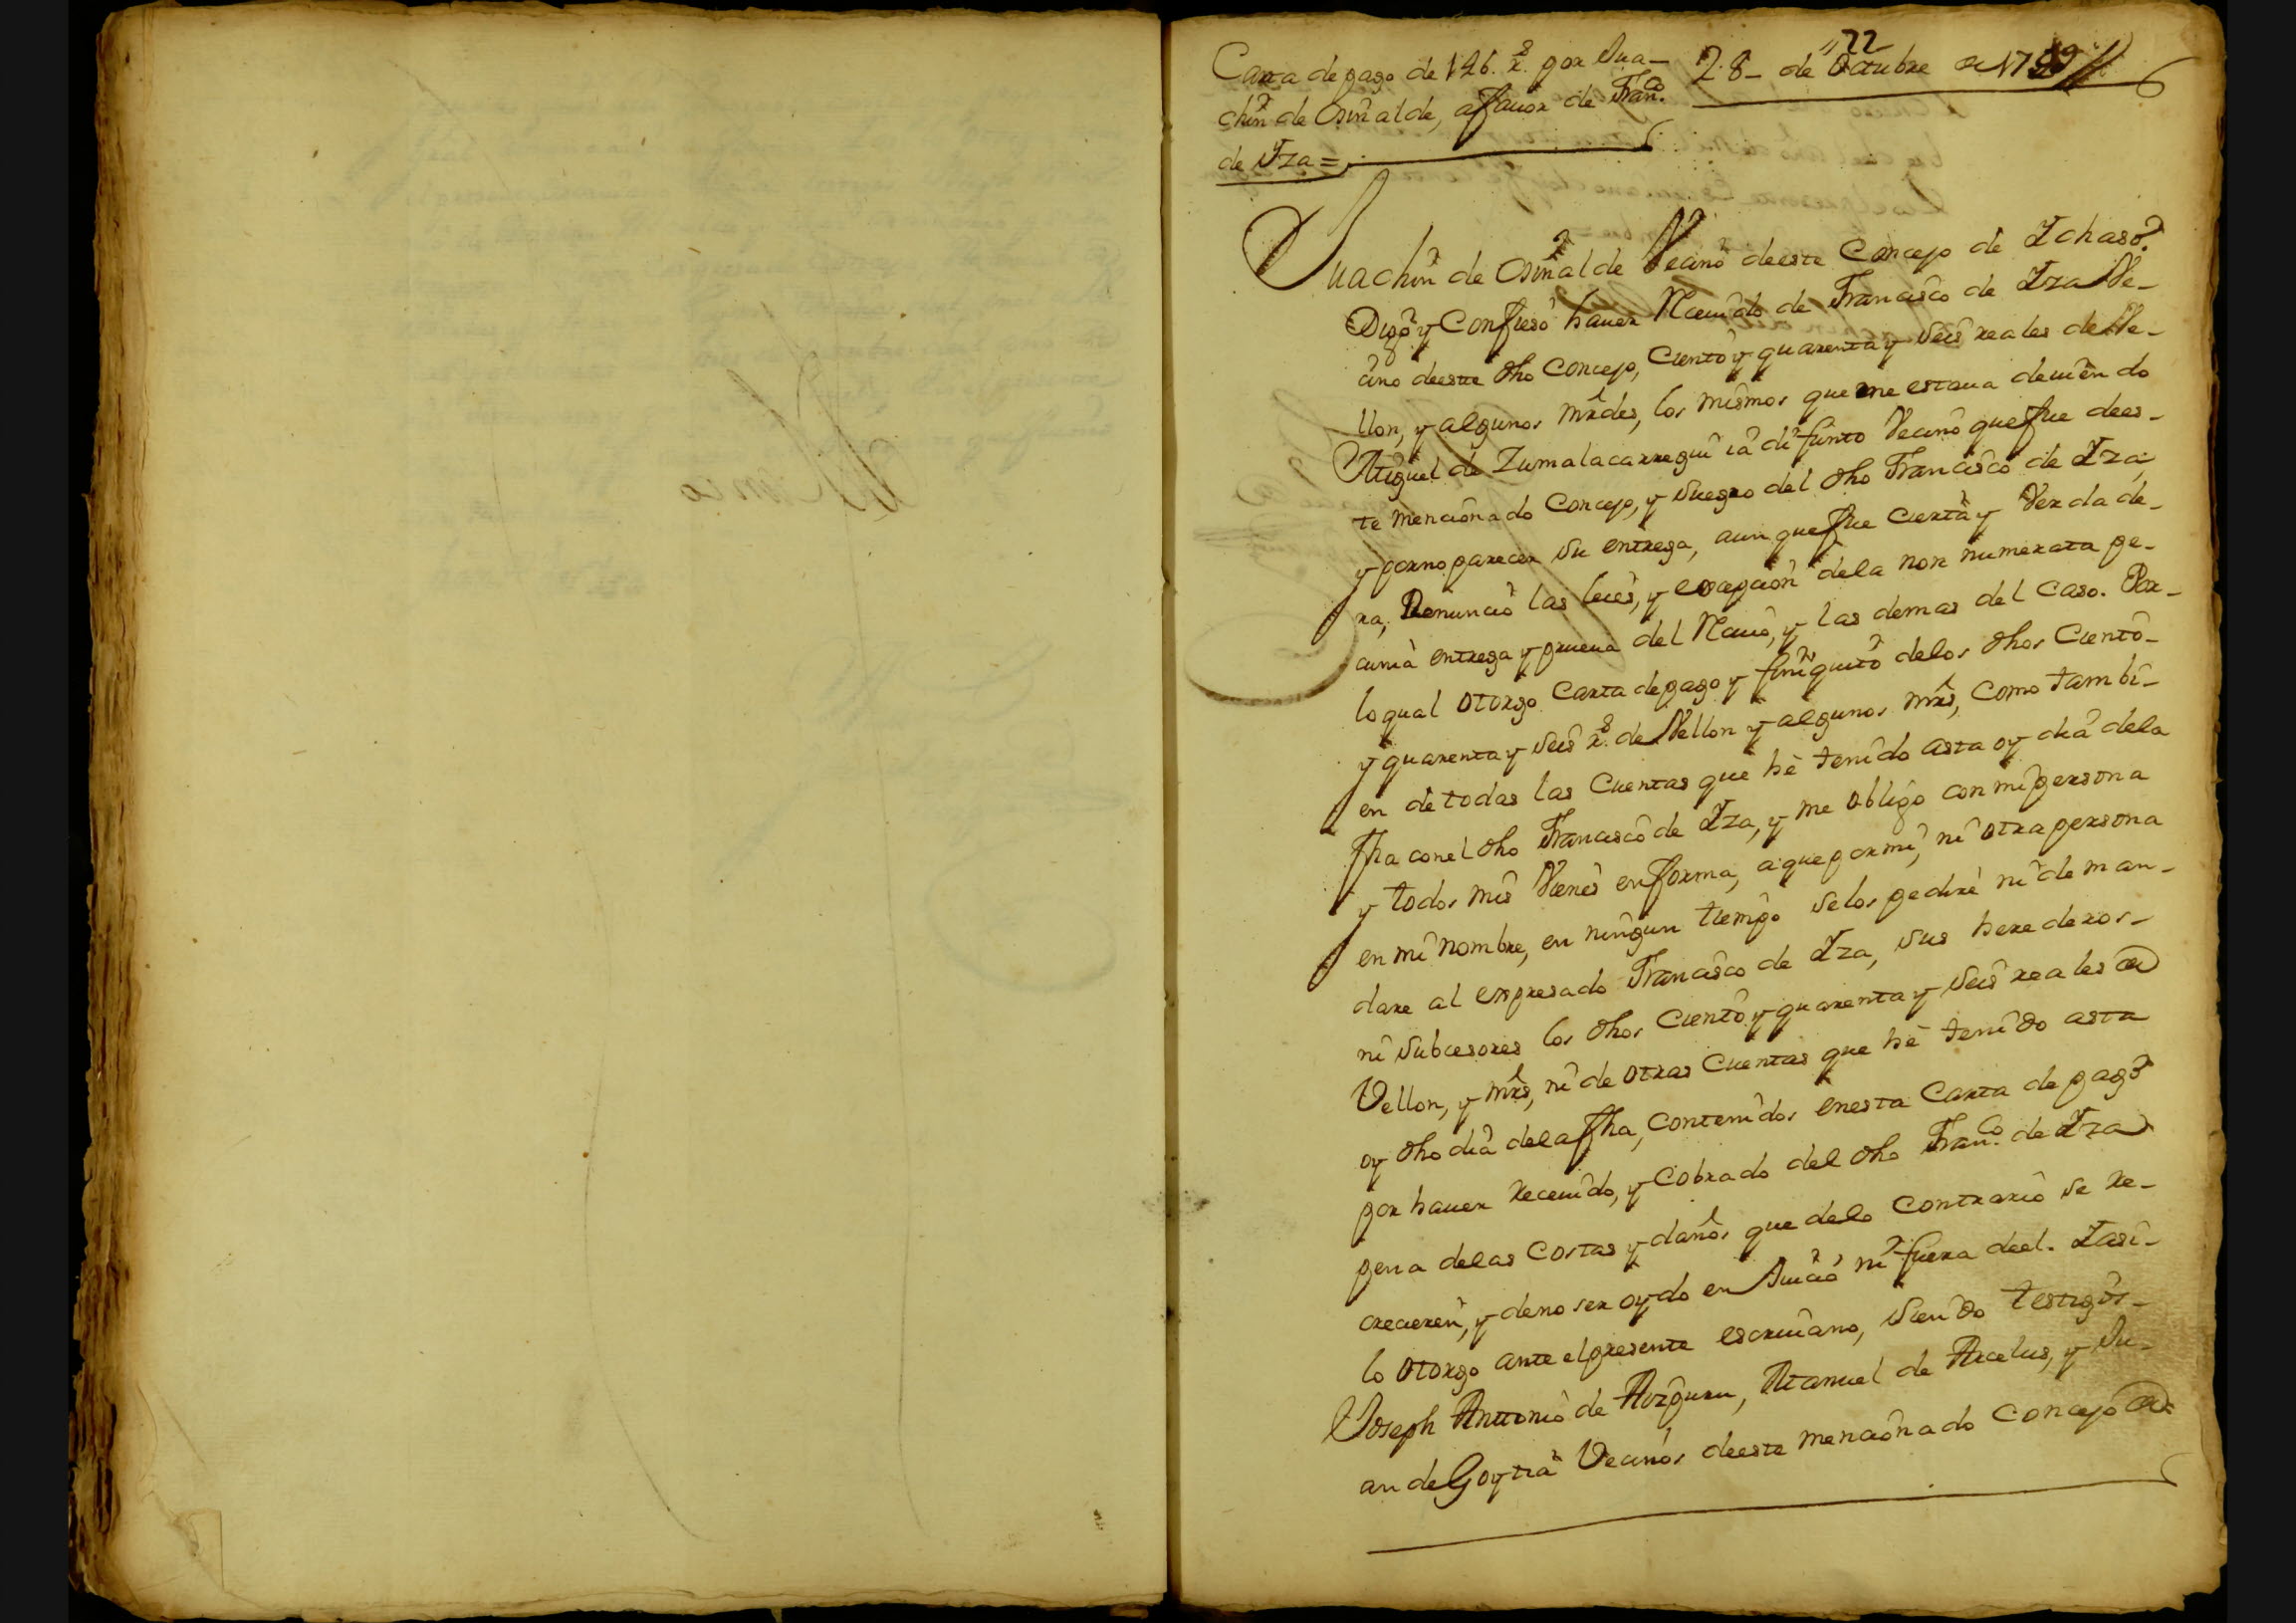 Carta de pago de 146. rs. por Jua-
chin de Osinalde, afauor de Franco.
de Yza =
28- de Octubre de 17
22
Juachin de Osinalde Vecino deeste Concejo de Ichaso.
Digo y Confieso hauer Receuido de Francisco de Yza Ve-
cino deeste dho Concejo, Ciento y quarenta y seis reales de Ve-
llon, y algunos mrdes, los mismos que me estaua deuiendo
Miguel de Zumalacarregui ia difunto Vecino que fue dees-
te mencionado Concejo, y suegro del dho Francisco de Yza,
y porno parecer su entrega, aun que fue cierta y Verdade-
ra, Renuncio las leies, y excepcion dela non numerata pe-
cunia entrega y prueua del Reciuo, y las demas del Caso. Por-
loqual otorgo Carta depago y finiquito delos dhos Ciento-
y quarenta y seis rs. de Vellon y algunos mrs, Como tambi-
en detodas las Cuentas que hè tenido asta oy dia dela
fha conel dho Francisco de Yza, y me obligo con mi persona
y todos mis Vienes enforma, aque por mi, ni otra persona
en mi nombre, en ningun tiempo selos pedirè ni deman-
dare al expresado Francisco de Yza, sus herederos-
ni subcesores los dhos Ciento y quarenta y seis reales de
Vellon, y mrs, ni de otras Cuentas que hè tenido asta
oy dho dia dela fha, contenidos enesta Carta de pago
por hauer Receuido, y Cobrado del dho Franco. de Yza
pena delas Costas y daños que delo Contrario se re-
crecieren, y deno ser oydo en Juicio ni fuera deel. Yasi-
lo otorgo ante elpresente escriuano, siendo testigos-
Joseph Anttonio de Aozguru, Manuel de Arcelus, y Ju-
an de Goytia Vecinos deeste mencionado Concejo de